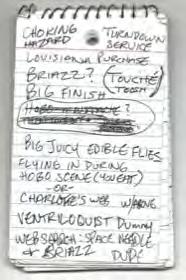 CHOKING HAZARD
TURNDOWN SERVICE
LOUISIANA PURCHASE
BRIAZZ?
TOUCHÉ TOOSH
BIG FINISH
?
BIG JUICY EDIBLE FLIES
FLYING IN DURING
HOBO SCENE (YOU EAT)
-OR-
CHARLOTTE'S WEB
VENTRILOQUIST Dummy
WEB SEARCH: SPACE NEEDLE
& BRIAZZ DUDE